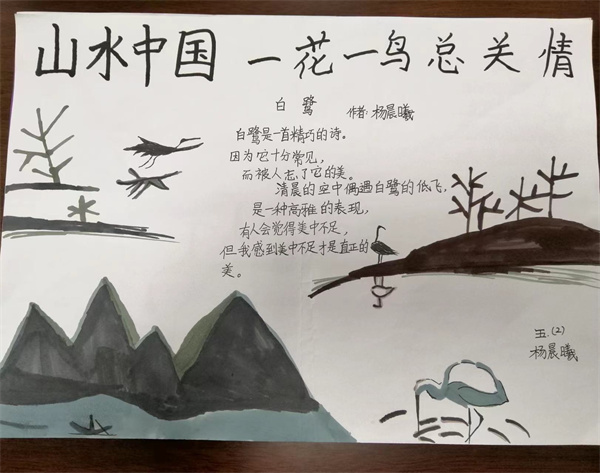 山水中国 一花一鸟总关情
白鹭 作者:杨晨曦
白鹭是一首精巧的诗。
因为它十分常见,
而被人忘了它的美。
清晨的空中偶遇白鹭的低飞,
是一种高雅的表现,
有人会觉得美中不足,
但我感到美中不足才是真正的
美。
五.(2)
杨晨曦